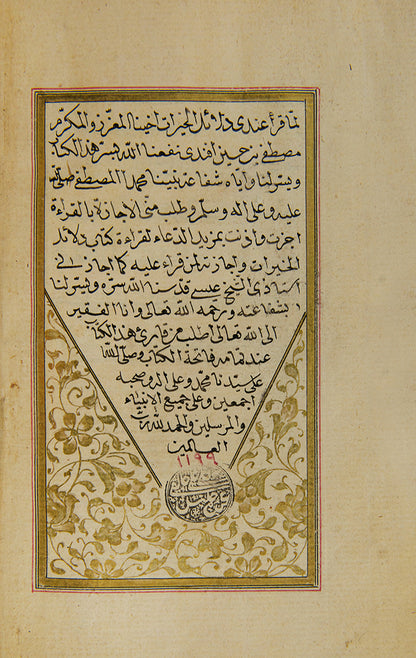 لما قرأ عندى دلائل الخيرات اخينا المعزز والمكرم
مصطفى بن حسين افندى نفعنا الله بسر هذا الكتاب
ويسر لنا واياه شفاعة نبيّنا محمد المصطفى صلى الله
عليه وعلى اله وسلم وطلب منى الاجازة بالقراءة
اجزت واذنت بمزيد الدعاء لقراءة كتابى دلائل
الخيرات واجازته لمن قراء عليه كما اجازنى
استاذى الشيخ عيسى قدسنا الله سره ويسر لنا
بشفاعته ورحمه الله تعالى وانا الفقير
الى الله تعالى اطلب من قارئ هذا الكتاب
عند تمامه فاتحة الكتاب وصلى الله
على سيدنا محمد وعلى اله وصحبه
اجمعين وعلى جميع الانبياء
والمرسلين والحمد لله رب
العالمين
١١٩٩